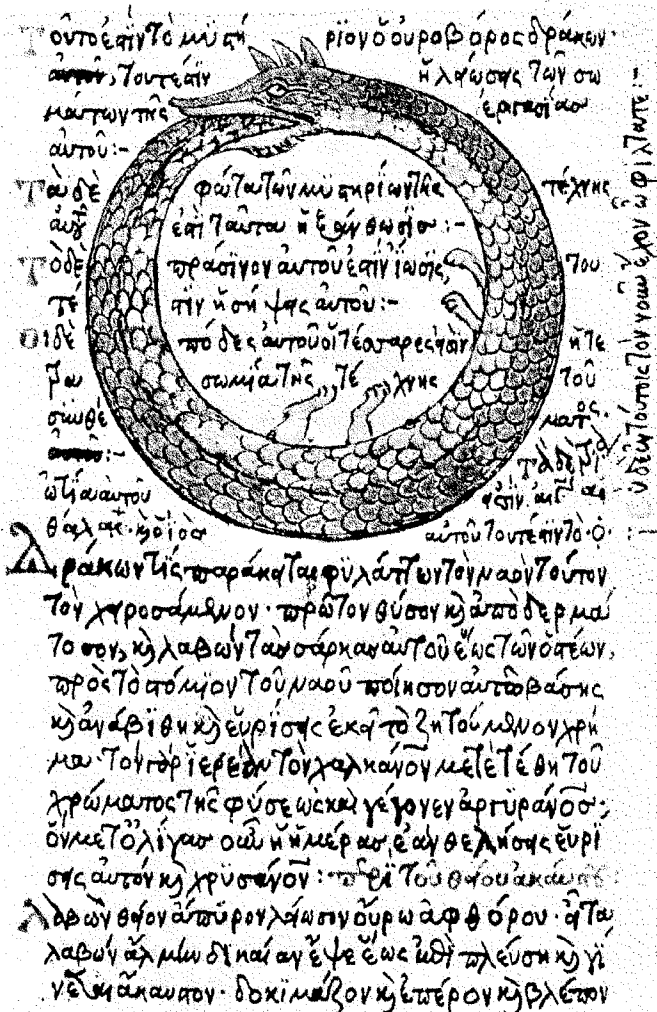 Τοῦτό ἐστιν τὸ μυστήριον ὁ οὐροβόρος δράκων·
τουτέστιν ἡ λείωσης τῶν σω
μάτων τῆς ἐργασίας
αὐτοῦ:-
Τὰ δὲ φῶτα τῶν μυστηρίων τῆς τέχνης
ἐστὶ ταῦτα ἡ ξάνθωσις:-
Τὸ δὲ πράσινον αὐτοῦ ἐστὶν ἴωσις, του
τέστιν ἡ σήψης αὐτοῦ:-
Οἱ δὲ πόδες αὐτοῦ οἱ τέσσαρες εἰσὶν ἡ τε
σωμία τῆς τέχνης τοῦ
συνθέματος.
Τὰ δὲ
ὠτία αὐτοῦ εἰσὶν αἱ
θάλαι κ ὁ ἰὸς αὐτοῦ τουτέστιν τὸ
δὲ ἐν τούτοις τὸν νοῦν ἔχον ὦ φίλτατε:-
Δράκων τίς παράκειται φυλάττων τὸν ναὸν τοῦτον
τὸν χυροσάμενον· πρῶτον θύσον κ ἀποδερμά
τοσον, κ λαβὼν τὰς σάρκας αὐτοῦ ἕως τῶν ὀστέων,
πρὸς τὸ στόμιον τοῦ ναοῦ ποίησον αὐτῶ βάσης
κ ἀνάβιθη κ εὑρίσης ἐκεῖ τὸ ζητούμενον χρῆ
μα· τὸν γὰρ ἱερέαν τὸν χαλκάνον μετετέθη τοῦ
χρώματος τῆς φύσεως καὶ γέγονεν ἀργυράνος·
ὃν μετ᾽ ὀλίγας οὖν ἡμέρας, ἐὰν θελήσης εὑρί
σης αὐτὸν κ χρυσάνον:· περὶ τοῦ θείου ἀκαύστου
Λαβὼν θεῖον ἄπυρον λείωσον οὔρω ἀφθόρου· εἶτα
λαβὼν ἅλμην δικαίαν ἕψε ἕως ἐπιπλεύση κ γί
νεται ἄκαυστον· δοκιμάζον κ ἐπέρον κ βλέπον